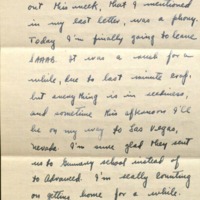 out this week, that I mentioned
in my last letter, was a phony.
Today I'm finally going to leave
SAAAB. It was a rush for a
while, due to last minute conf.
but everything is in readiness,
and sometime this afternoon I'll
be on my way to Las Vegas,
Nevada. I'm sure glad they sent
us to Gunnery school instead of
to Advanced. I'm really counting
on getting home for a while.